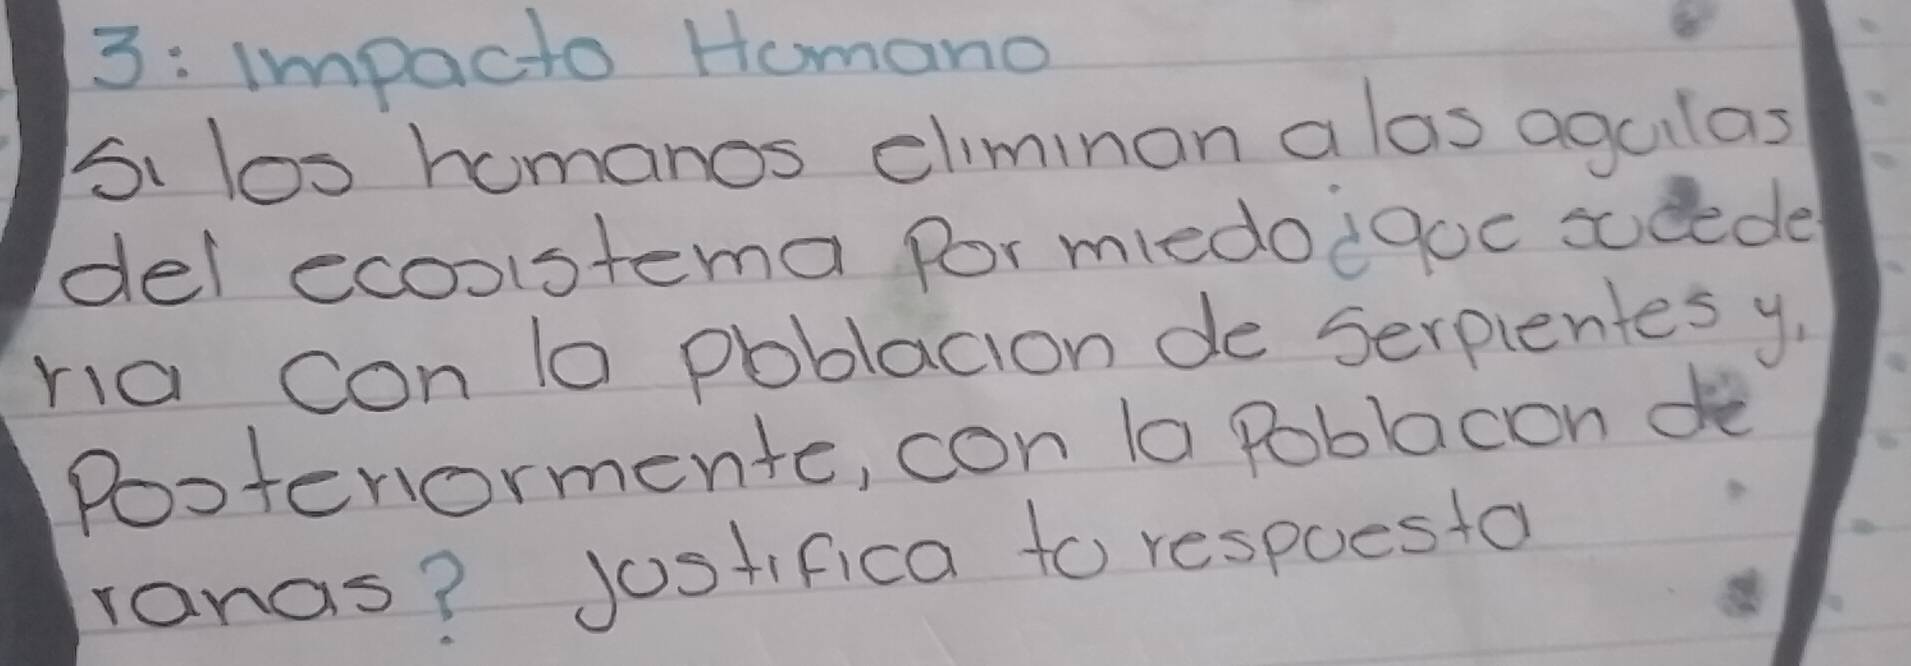 3: Impacto Humano
Si los humanos eliminan a las aguilas
del ecosistema por miedo ¿que sucede
ria con la poblacion de serpientes y,
Posteriormente, con la Poblacion de
ranas? Justifica tu respuesta